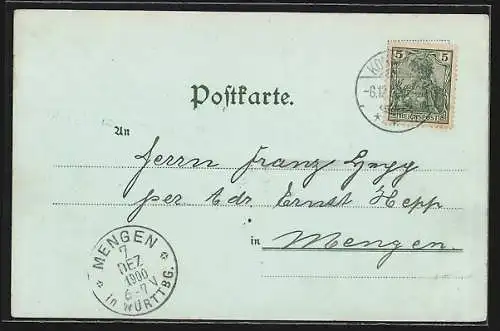 5 5
REICHSPOST
-6.12
Postkarte.
An
Herrn Franz
per Adr. Ernst Hepp
in Mengen.
MENGEN
7
DEZ
1900
6-7V
in WÜRTTBG.